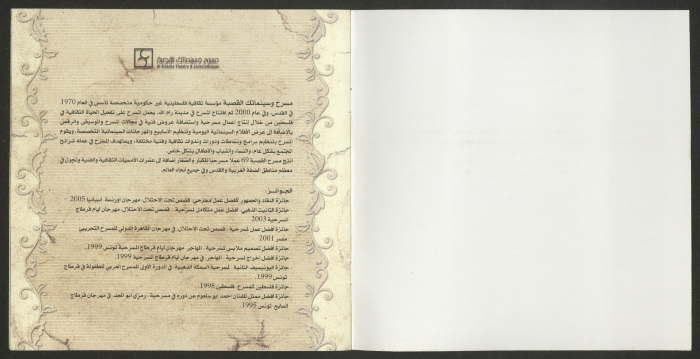 مسرح وسينماتك القصبة
Al Kasaba Theatre & Cinematheque
مسرح وسينماتك القصبة مؤسسة ثقافية فلسطينية غير حكومية متخصصة تأسس في العام 1970
في القدس، وفي عام 2000 تم افتتاح المسرح في مدينة رام الله. يعمل المسرح على تفعيل الحياة الثقافية في
فلسطين من خلال إنتاج أعمال مسرحية واستضافة عروض فنية في مجالات المسرح والموسيقى والرقص
بالإضافة إلى عرض الأفلام السينمائية اليومية وتنظيم الأسابيع والمهرجانات السينمائية المتخصصة. ويقوم
المسرح بتنظيم برامج ونشاطات ودورات وندوات ثقافية وفنية مختلفة، ويستهدف المسرح في عمله شرائح
المجتمع بشكل عام، والنساء والشباب والأطفال بشكل خاص.
أنتج مسرح القصبة 69 عملا مسرحيا للكبار والصغار إضافة إلى عشرات الأمسيات الثقافية والفنية وتجول في
معظم مناطق الضفة الغربية والقدس وفي جميع أنحاء العالم.
الجوائز:
جائزة النقاد والجمهور لأفضل عمل مسرحي، قصص تحت الاحتلال، مهرجان اورنسة، اسبانيا 2005
جائزة التانيت الذهبي، أفضل عمل متكامل لمسرحية، قصص تحت الاحتلال، مهرجان أيام قرطاج
المسرحية 2003
جائزة أفضل عمل لمسرحية، قصص تحت الاحتلال، في مهرجان القاهرة الدولي للمسرح التجريبي،
مصر 2001
جائزة أفضل تصميم ملابس لمسرحية، المهاجر، مهرجان أيام قرطاج المسرحية تونس 1999.
جائزة أفضل إخراج لمسرحية، المهاجر، في مهرجان أيام قرطاج المسرحية 1999.
جائزة اليونيسيف الثانية، لمسرحية السمكة الذهبية، في الدورة الأولى للمسرح العربي للطفولة في قرطاج
تونس 1999.
جائزة فلسطين للمسرح، فلسطين 1998.
جائزة أفضل ممثل للفنان احمد أبو سلعوم عن دوره في مسرحية، رمزي أبو المجد، في مهرجان قرطاج
السابع، تونس 1995.